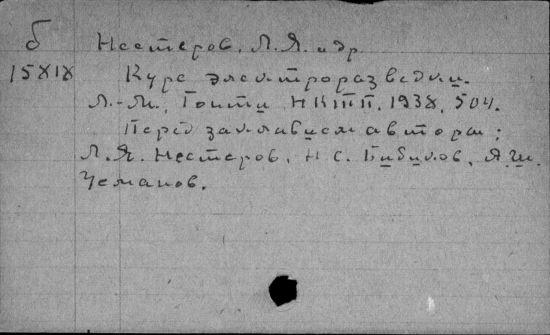 б Нестеров, Л.Я. и др.
15818 Курс электроразведки.
Л.-М., Гонти НКТП, 1938, 504.
Перед заглавием авторы:
Л.Я. Нестеров, Н.С. Бибиков, Я.Ш.
Усманов.